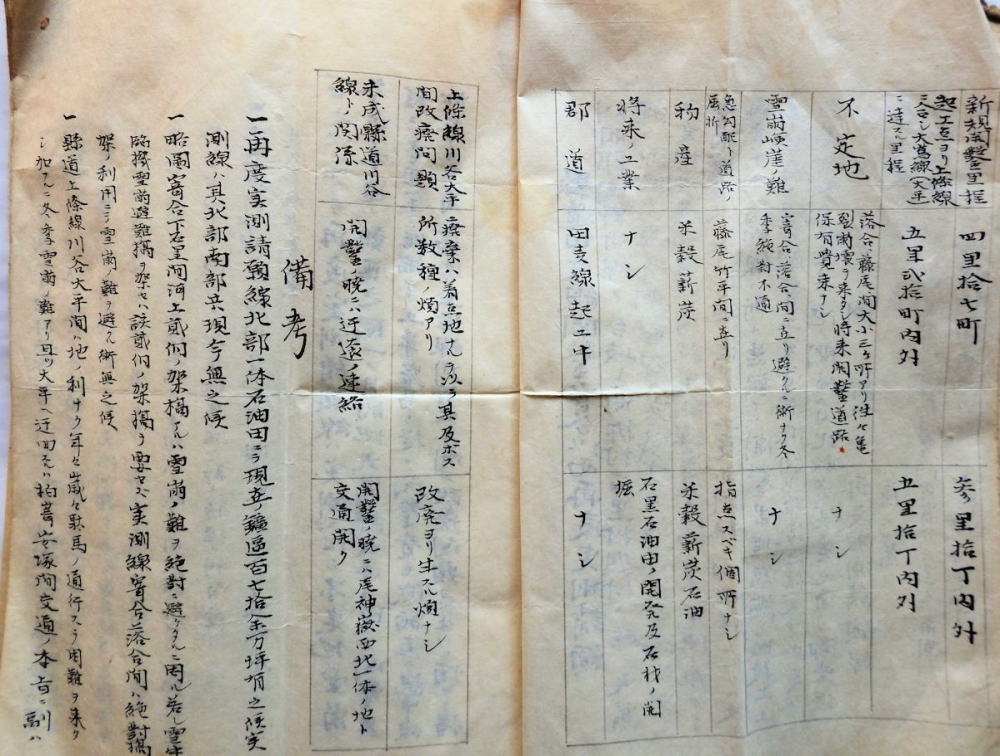 新規開鑿里程
四里拾七町
参里拾丁内外
起工点ヨリ上條線
ニ合シ大嶌線大平
ニ達スル里程
五里弐拾町内外
五里拾丁内外
不定地
落合、藤尾間大小三ヶ所アリ往々亀
裂崩壊ヲ来タシ将来開鑿道路
保存覚束ナシ
ナシ
雪崩嶮崖ノ難
寄合、落合ノ間ニ在リ避クルニ術ナク冬
季絶対不通
ナシ
急勾配ト道路ノ
屈折
藤尾竹平間ニ在リ
指点スベキ個所ナシ
物産
米穀薪炭
米穀薪炭石油
将来ノ工業
ナシ
石黒石油田ノ開発及石材ノ開
掘
郡道
田麦線起工中
ナシ
上條線川谷大平
間改廃問題
廃棄ハ着点地ナルヲ以テ其及ボス
所数種ノ煩アリ
改廃ヨリ生スル煩ナシ
未成縣道川谷
線ト関係
開鑿ノ晩ニハ迂遠ノ連絡
開鑿ノ晩ニハ尾神嶽西北一体ノ地ト
交通開ク
備考
一再度実測請願線北部一体石油田ニテ現在ノ鑛區百七拾余万坪有之候実
測線ハ其北部南部共現今無之候
一略圖寄合下石黒間河上貳個ノ架橋アルハ雪崩ノ難ヲ絶対ニ避ケタルニ因ル若シ雪中
臨機雪崩避難橋ヲ架セハ該貳個ノ架橋ヲ要セス実測線寄合落合間ハ絶對橋
架ノ利用ニテ雪崩ノ難ヲ避クル術無之候
一縣道上條線川谷大平間ハ地ノ利ナク年々歳々駄馬ノ通行スラ困難ヲ来タ
シ加フルニ冬季雪崩ノ難アリ且ツ大平ヘ迂回スルハ柏崎安塚間交通ノ本旨ニ副ハ